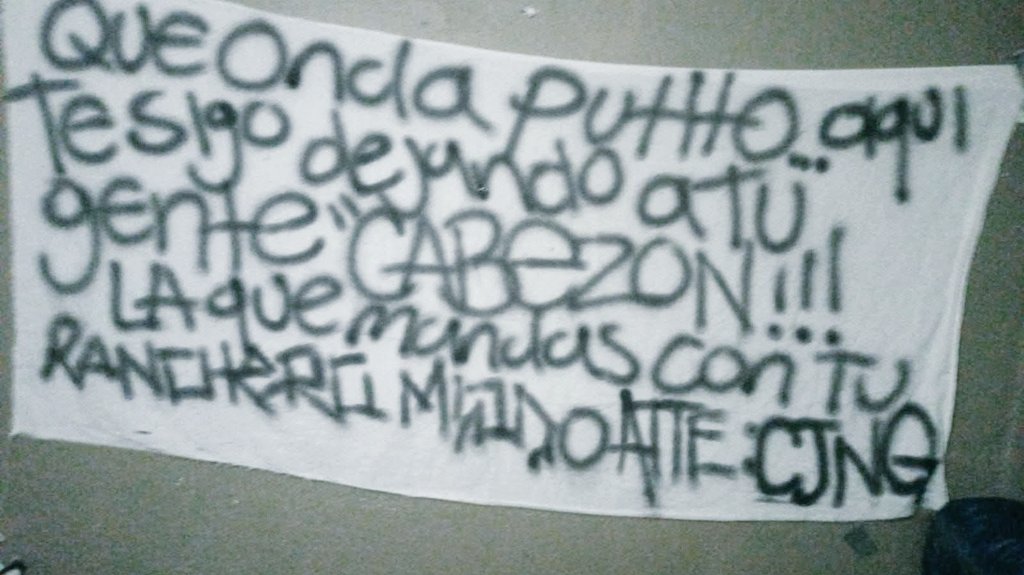 Que Onda PUttO aquí
Te sigo dejando a TU...
gente "CABEZON!!!
LA que mandas con TU
RANCHERO MIADO ATTE: CJNG